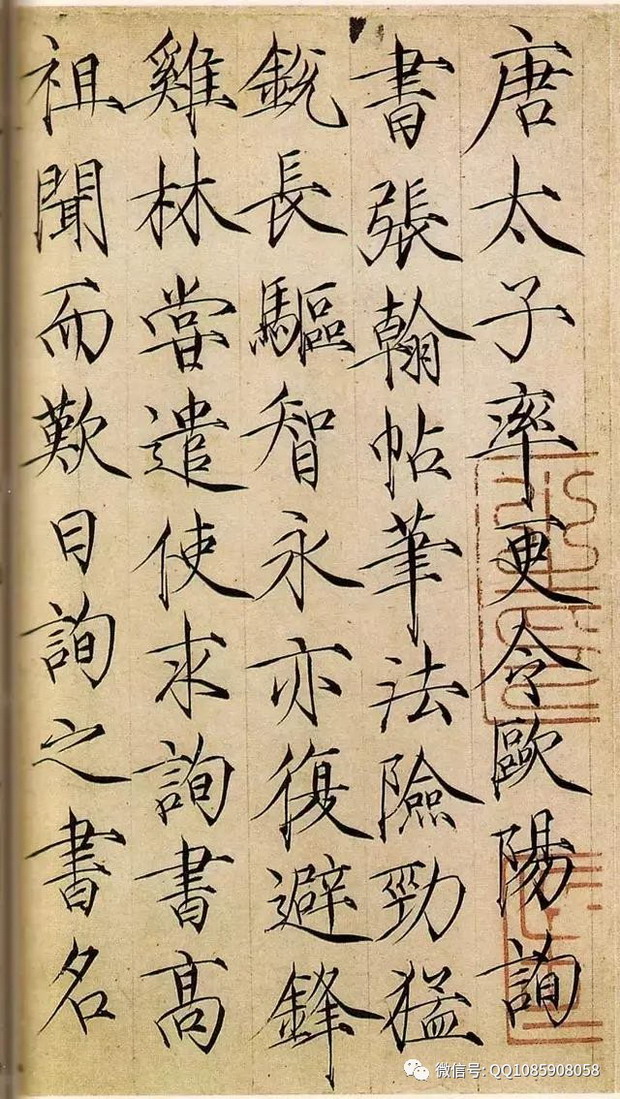 唐太子率更令歐陽詢
書張翰帖筆法險勁猛
銳長驅智永亦復避鋒
雞林嘗遣使求詢書高
祖聞而歎曰詢之書名
微信号: QQ1085908058